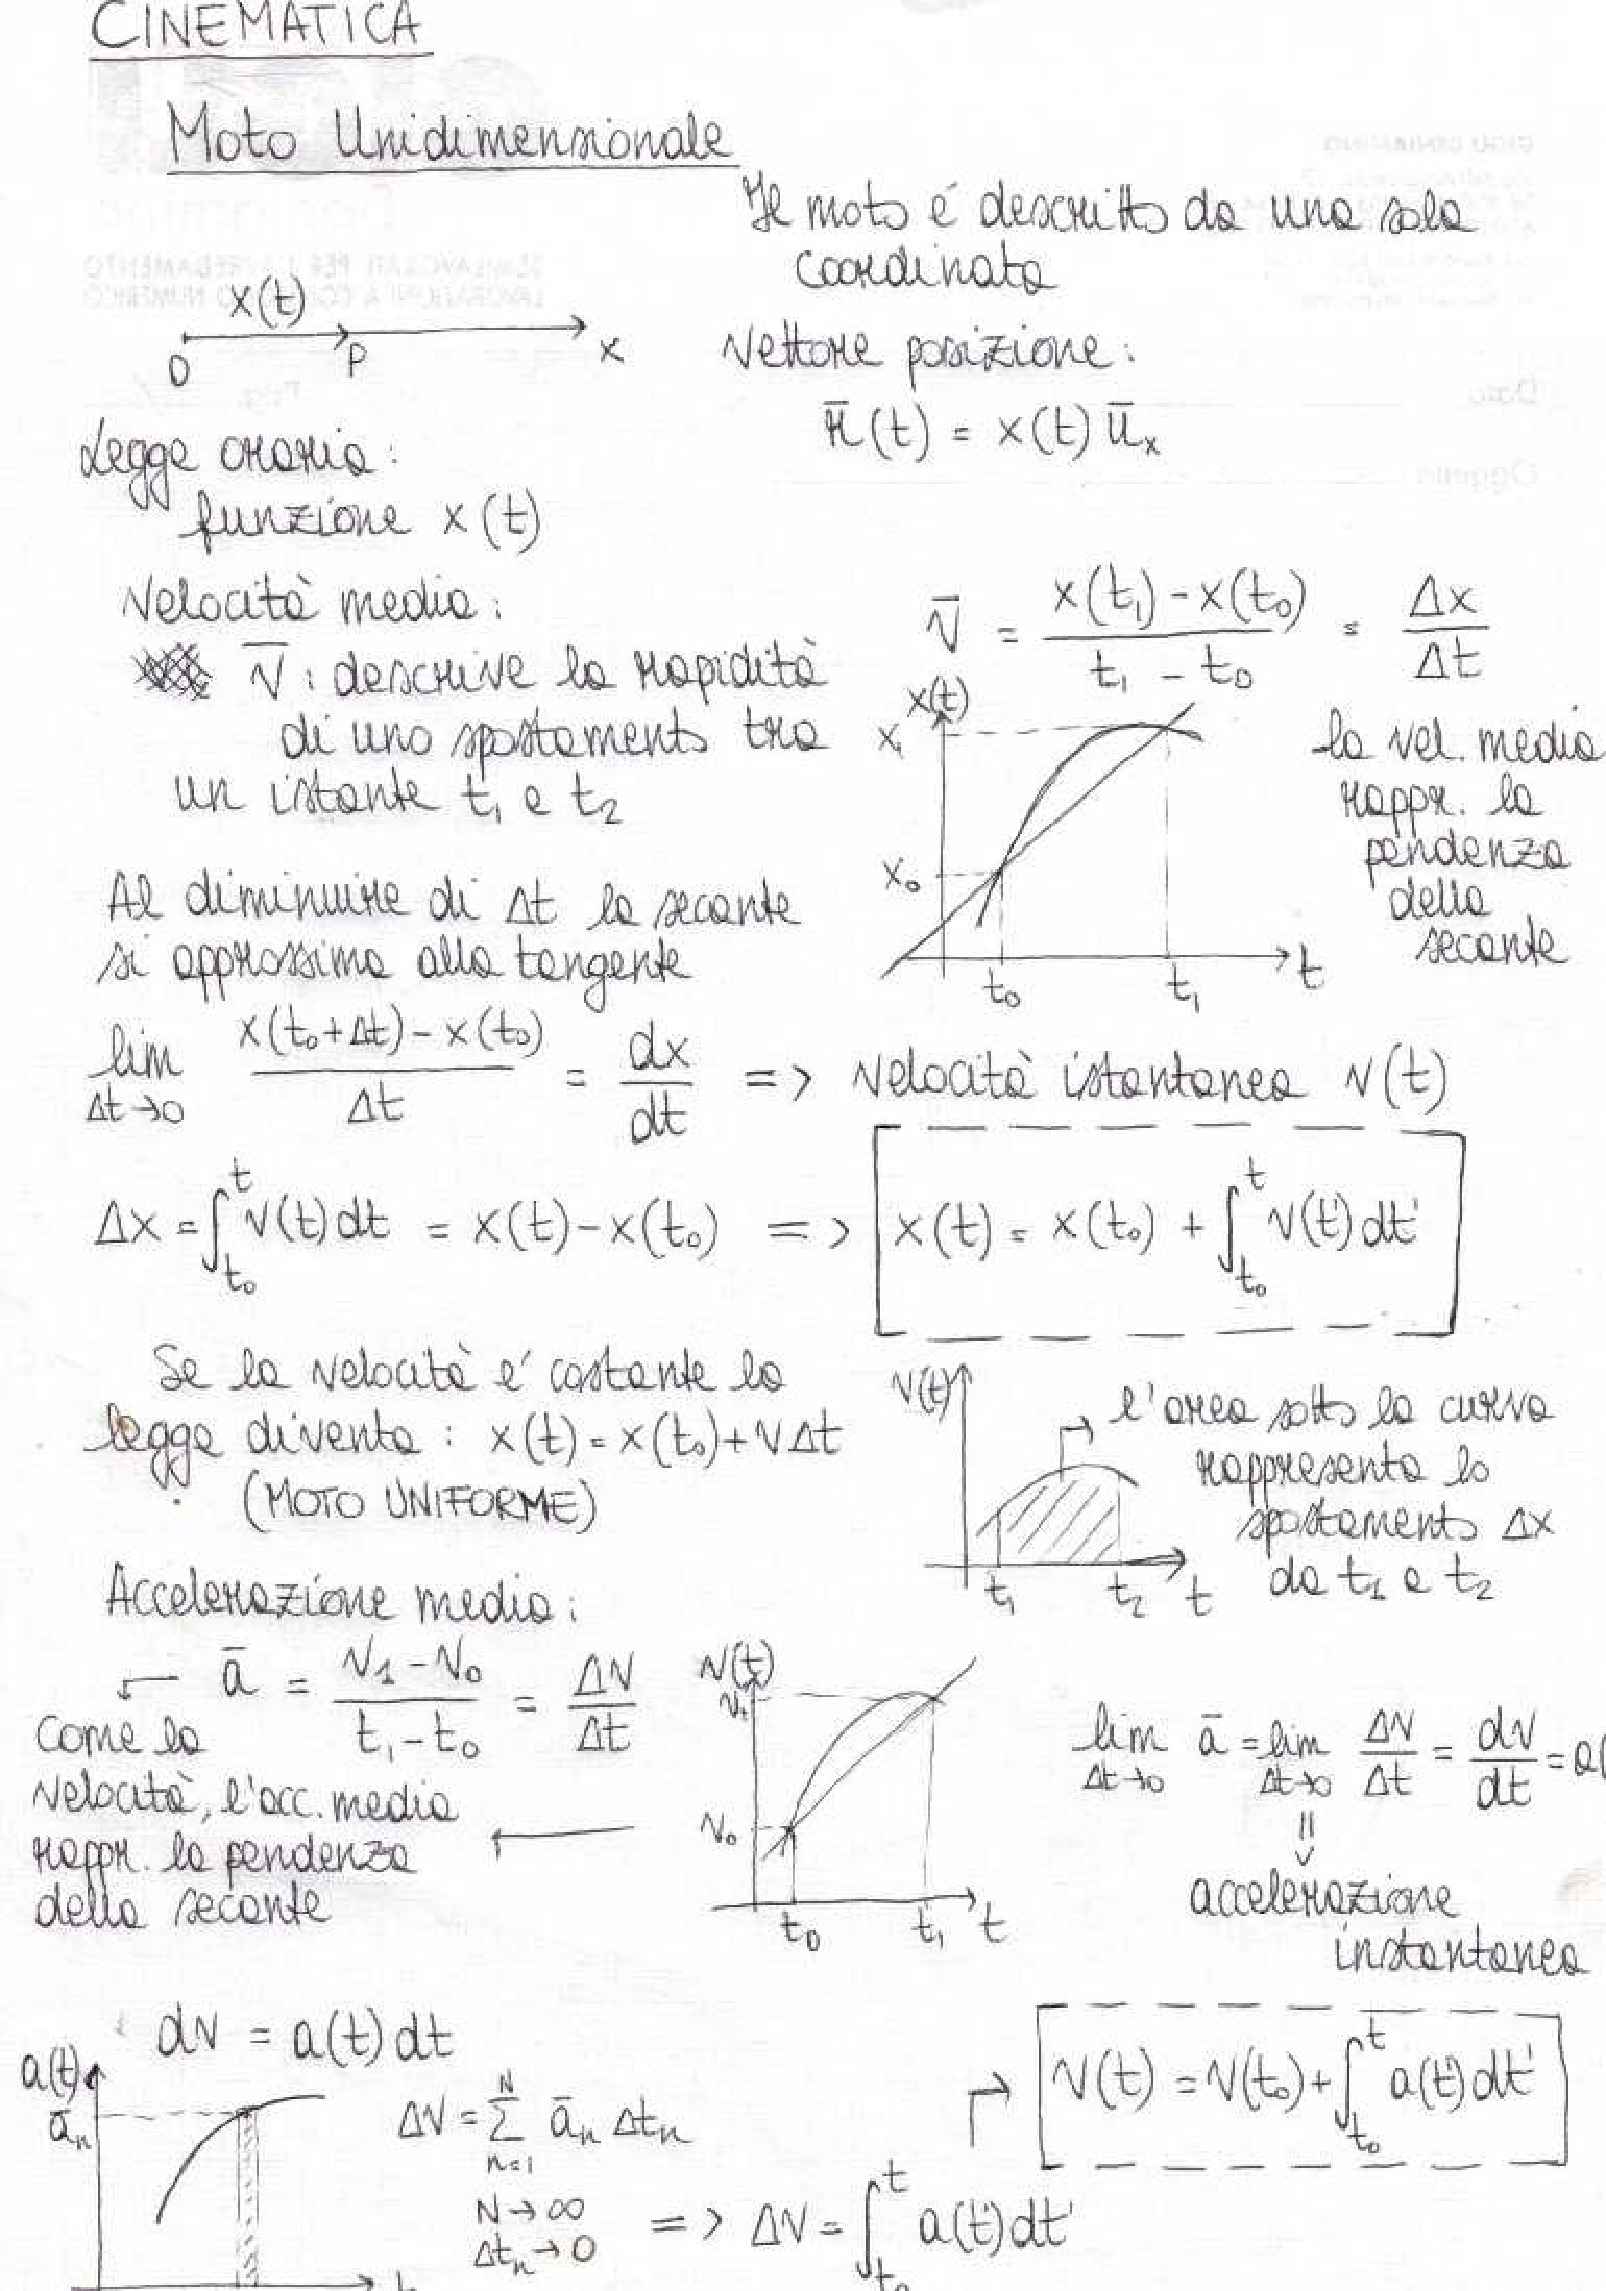 CINEMATICA
Moto Unidimensionale
Il moto é descritto da una sola
coordinata
x(t)
O P x
Vettore posizione:
r̅(t) = x(t) u̅ₓ
Legge oraria:
funzione x(t)
Velocità media:
v̅ = x(t₁) - x(t₀) / t₁ - t₀ = Δx / Δt
v̅: descrive la rapidità
di uno spostamento tra
un istante t₁ e t₂
x(t)
x₁
x₀
t₀ t₁ t
la vel. media
rappr. la
pendenza
della
secante
Al diminuire di Δt la secante
si approssima alla tangente
lim Δt→0 x(t₀+Δt) - x(t₀) / Δt = dx / dt => velocità istantanea v(t)
Δx = ∫ₜ₀ᵗ v(t) dt = x(t) - x(t₀) => x(t) = x(t₀) + ∫ₜ₀ᵗ v(t') dt'
Se la velocità e' costante la
legge diventa: x(t) = x(t₀) + vΔt
(MOTO UNIFORME)
v(t)
t₁ t₂ t
l'area sotto la curva
rappresenta lo
spostamento Δx
da t₁ a t₂
Accelerazione media:
a̅ = v₁ - v₀ / t₁ - t₀ = Δv / Δt
come la
velocità, l'acc. media
rappr. la pendenza
della secante
v(t)
v₁
v₀
t₀ t₁ t
lim Δt→0 a̅ = lim Δt→0 Δv / Δt = dv / dt = a(
accelerazione
instantanea
dv = a(t) dt
a(t)
a̅ₙ
Δv = Σ a̅ₙ Δtₙ
N
n=1
N→∞
Δtₙ→0
=> Δv = ∫ₜ₀ᵗ a(t') dt'
v(t) = v(t₀) + ∫ₜ₀ᵗ a(t') dt'